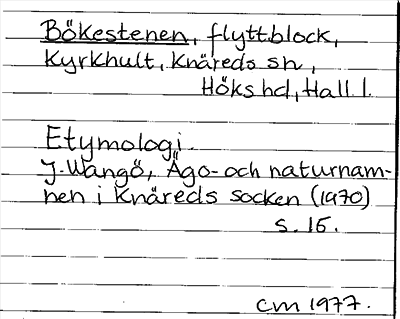 Bökestenen, flyttblock,
Kyrkhult, Knäreds sn,
Höks hd, Hall. l.
Etymologi.
J. Wangö, Ägo- och naturnam-
nen i Knäreds socken (1970)
s. 15.
CM 1977.